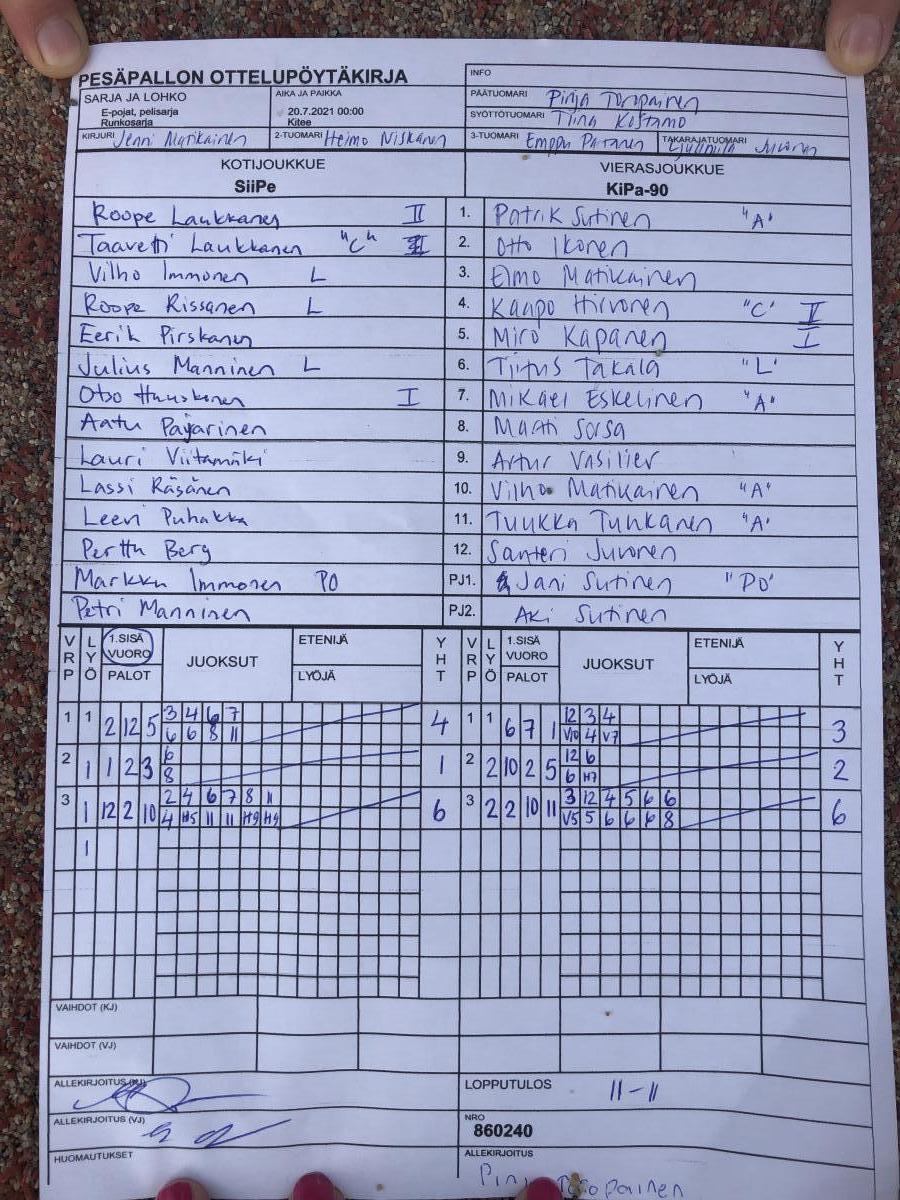 PESÄPALLON OTTELUPÖYTÄKIRJA
INFO
SARJA JA LOHKO
E-pojat, pelisarja
Runkosarja
AIKA JA PAIKKA
20.7.2021 00:00
Kitee
PÄÄTUOMARI Pinja Toropainen
SYÖTTÖTUOMARI Tiina Kostamo
KIRJURI Jenni Matikainen
2-TUOMARI Heimo Niskanen
3-TUOMARI Emppu
TAKARAJATUOMARI Juvonen
KOTIJOUKKUE
SiiPe
VIERASJOUKKUE
KiPa-90
Roope Laukkanen II 1. Patrik Sutinen "A"
Taavetti Laukkanen "C" 2. Otto Ikonen
Vilho Immonen L 3. Elmo Matikainen
Roope Rissanen L 4. Kaapo Hirvonen "C" II
Eerik Pirskanen 5. Miro Kapanen I
Julius Manninen L 6. Tiitus Takala "L"
Otso Huuskonen I 7. Mikael Eskelinen "A"
Aatu Pajarinen 8. Matti Sorsa
Lauri Viitamäki 9. Artur Vasiliev
Lassi Räsänen 10. Vilho Matikainen "A"
Leevi Puhakka 11. Tuukka Tunkanen "A"
Perttu Berg 12. Santeri Juvonen
Markku Immonen PO PJ1. Jani Sutinen "PO"
Petri Manninen PJ2. Aki Sutinen
VRP LYÖ 1.SISÄ VUORO PALOT JUOKSUT ETENIJÄ LYÖJÄ YHT VRP LYÖ 1.SISÄ VUORO PALOT JUOKSUT ETENIJÄ LYÖJÄ YHT
1 1 2 12 5 3 4 6 7 4 1 1 6 7 1 12 3 4 3
6 6 8 11 V10 4 V7
2 1 1 2 3 6 1 2 2 10 2 5 12 6 2
8 6 H7
3 1 12 2 10 2 4 6 7 8 11 6 3 2 2 10 11 3 12 4 5 6 6 6
4 H5 11 11 H9 H9 V5 5 6 6 6 8
1
VAIHDOT (KJ)
VAIHDOT (VJ)
ALLEKIRJOITUS (KJ)
LOPPUTULOS 11-11
ALLEKIRJOITUS (VJ)
NRO
860240
HUOMAUTUKSET
ALLEKIRJOITUS